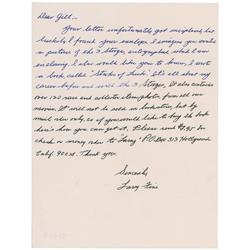 Dear Gill...
Your letter unfortunately got misplaced but
luckily I found your envelope. I imagine you wanted
a picture of the 3 Stooges, autographed which I am
enclosing. I also would like you to know, I wrote
a book, called "Stroke of Luck". It's all about my
career before and with the 3 Stooges, it also contains
over 120 rare and collectors item photos, from all our
movies. It will not be sold in bookstores, but by
mail order only, so if you would like to buy the book
here's how you can get it. Please send $7.95 in
check or money order to Larry P.O. Box 313 Hollywood
Calif. 90028. Thank you
Sincerely
Larry Fine